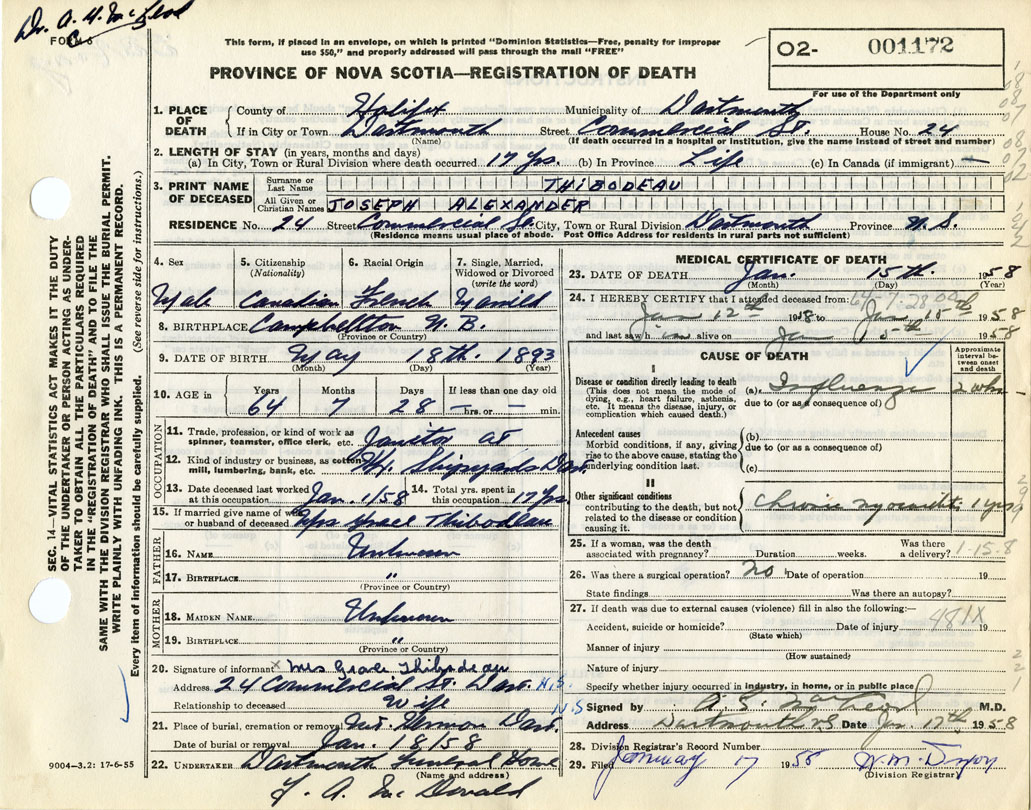 Dr. A. G. McLeod
FORM 6
This form, if placed in an envelope, on which is printed "Dominion Statistics—Free, penalty for improper
use $50," and properly addressed will pass through the mail "FREE"
PROVINCE OF NOVA SCOTIA—REGISTRATION OF DEATH
O2- 001172
For use of the Department only
SEC. 14—VITAL STATISTICS ACT MAKES IT THE DUTY
OF THE UNDERTAKER OR PERSON ACTING AS UNDER-
TAKER TO OBTAIN ALL THE PARTICULARS REQUIRED
IN THE "REGISTRATION OF DEATH" AND TO FILE THE
SAME WITH THE DIVISION REGISTRAR WHO SHALL ISSUE THE BURIAL PERMIT.
WRITE PLAINLY WITH UNFADING INK. THIS IS A PERMANENT RECORD.
Every item of information should be carefully supplied. (See reverse side for instructions.)
1. PLACE OF DEATH
County of Halifax Municipality of Dartmouth
If in City or Town Dartmouth Street Commercial St. House No. 24
(Name) (If death occurred in a hospital or institution, give the name instead of street and number)
2. LENGTH OF STAY (in years, months and days)
(a) In City, Town or Rural Division where death occurred 17 yrs. (b) In Province Life (c) In Canada (if immigrant) —
3. PRINT NAME OF DECEASED
Surname or Last Name THIBODEAU
All Given or Christian Names JOSEPH ALEXANDER
RESIDENCE No. 24 Street Commercial St. City, Town or Rural Division Dartmouth Province N.S.
(Residence means usual place of abode. Post Office Address for residents in rural parts not sufficient)
4. Sex 5. Citizenship (Nationality) 6. Racial Origin 7. Single, Married, Widowed or Divorced (write the word)
Male Canadian French Married
8. BIRTHPLACE Campbellton N.B.
(Province or Country)
9. DATE OF BIRTH May 18th. 1893
(Month) (Day) (Year)
10. AGE in Years Months Days If less than one day old
64 7 28 — hrs. or — min.
OCCUPATION
11. Trade, profession, or kind of work as
spinner, teamster, office clerk, etc. Janitor at
12. Kind of industry or business, as cotton
mill, lumbering, bank, etc. Hx. Shipyards Dart.
13. Date deceased last worked
at this occupation Jan. 1/58
14. Total yrs. spent in
this occupation 17 yrs.
15. If married give name of wife
or husband of deceased Mrs Grace Thibodeau
FATHER
16. NAME Unknown
17. BIRTHPLACE "
(Province or Country)
MOTHER
18. MAIDEN NAME Unknown
19. BIRTHPLACE "
(Province or Country)
20. Signature of informant x Mrs Grace Thibodeau
Address 24 Commercial St. Dart. N.S.
Relationship to deceased Wife N.S
21. Place of burial, cremation or removal Mt. Hermon Dart.
Date of burial or removal Jan. 18/58
22. UNDERTAKER Dartmouth Funeral Home
(Name and address)
McDonald
9004—3.2: 17-6-55
MEDICAL CERTIFICATE OF DEATH
23. DATE OF DEATH Jan. 15th. 1958
(Month) (Day) (Year)
24. I HEREBY CERTIFY that I attended deceased from: 64-7-28
Jan 12th 1958 to Jan 15th 1958
and last saw him alive on Jan 15th 1958
CAUSE OF DEATH
Approximate interval between onset and death
I
Disease or condition directly leading to death
(This does not mean the mode of
dying, e.g., heart failure, asthenia,
etc. It means the disease, injury, or
complication which caused death.)
(a) Influenza 2 wks
due to (or as a consequence of)
Antecedent causes
Morbid conditions, if any, giving
rise to the above cause, stating the
underlying condition last.
(b)
due to (or as a consequence of)
(c)
II
Other significant conditions
contributing to the death, but not
related to the disease or condition
causing it.
Chronic 1 yrs
25. If a woman, was the death
associated with pregnancy? Duration weeks. Was there
a delivery? 1-15-8
26. Was there a surgical operation? no Date of operation 19
State findings Was there an autopsy?
27. If death was due to external causes (violence) fill in also the following:—
Accident, suicide or homicide? Date of injury 481X 19
(State which)
Manner of injury
(How sustained)
Nature of injury
Specify whether injury occurred in industry, in home, or in public place
Signed by M.D.
Address Dartmouth N.S Date Jan 17th 1958
28. Division Registrar's Record Number
29. Filed January 17 1958
(Division Registrar)